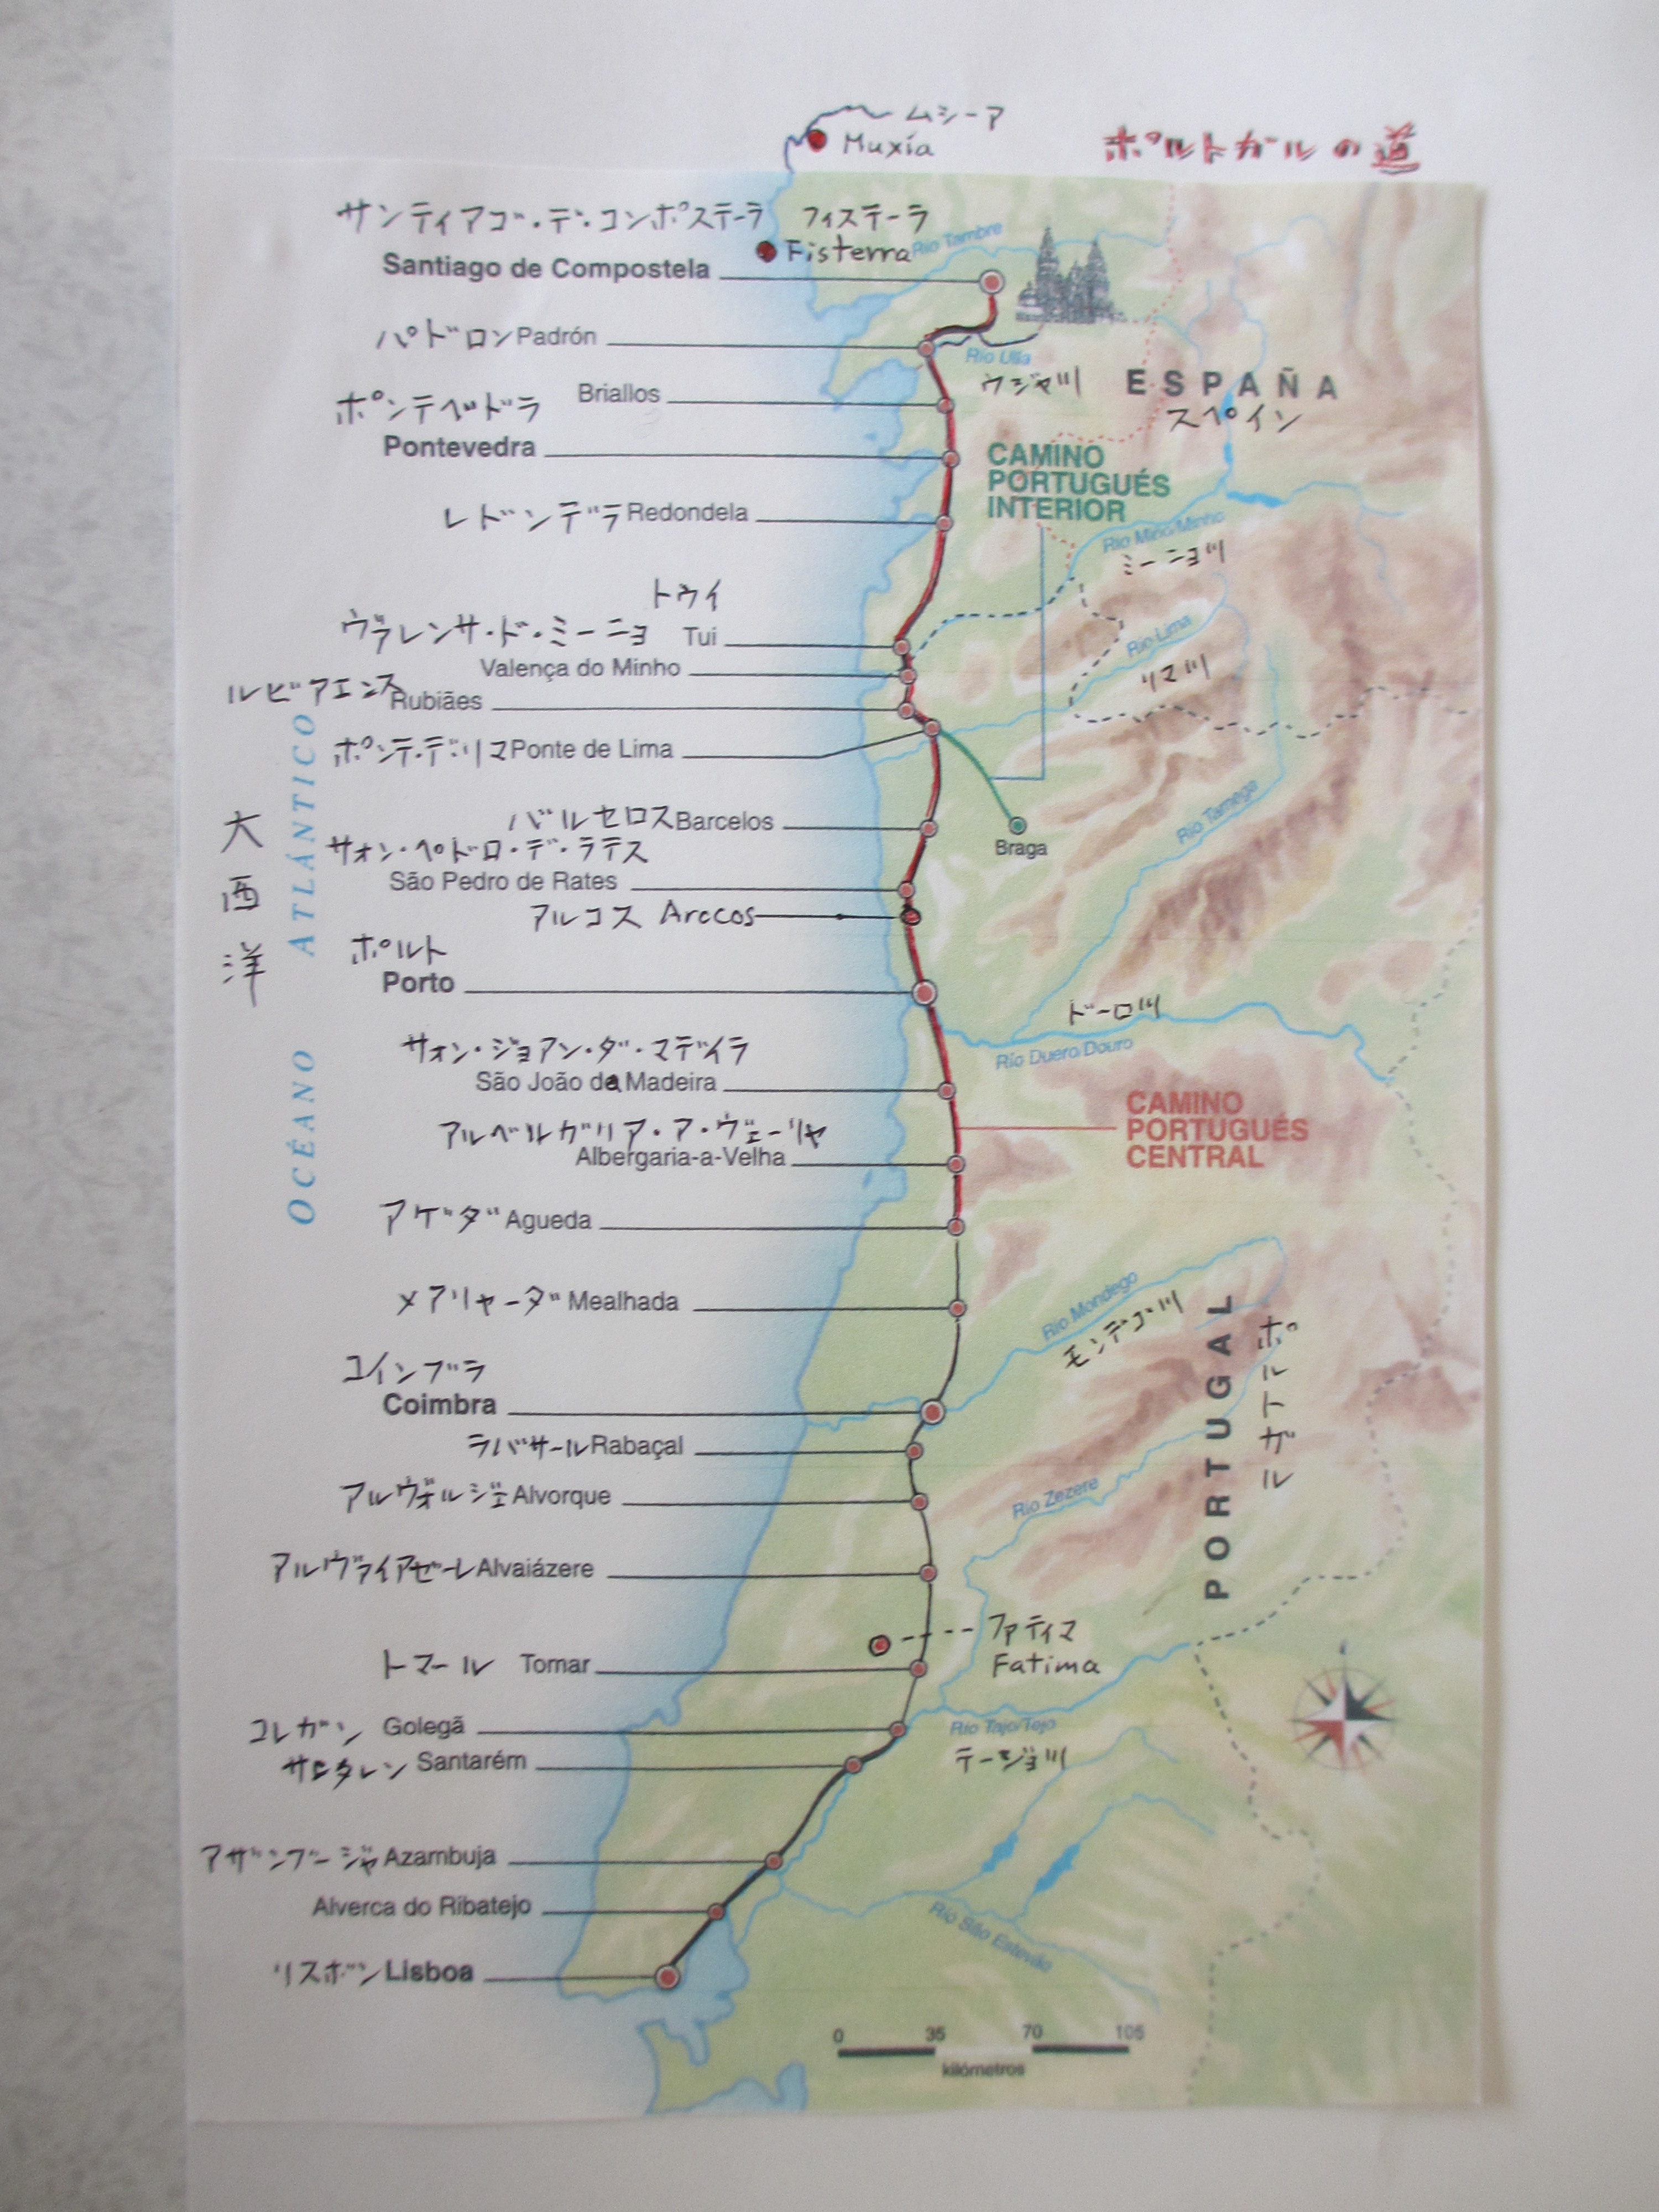 ムシーア
Muxía
ポルトガルの道
サンティアゴ・デ・コンポステーラ
フィステーラ
Fisterra
Río Tambre
Santiago de Compostela
パドロン Padrón
Río Ulla
ウジャ川
ESPAÑA
スペイン
Briallos
ポンテベドラ
Pontevedra
CAMINO
PORTUGUÉS
INTERIOR
レドンデラ Redondela
Río Miño/Minho
ミーニョ川
トゥイ
Tui
ヴァレンサ・ド・ミーニョ
Valença do Minho
Río Lima
リマ川
ルビアエンス
Rubiães
ポンテ・デ・リマ Ponte de Lima
バルセロス Barcelos
Braga
Río Tamega
サォン・ペドロ・デ・ラテス
São Pedro de Rates
アルコス Arccos
ポルト
Porto
大西洋
OCÉANO ATLÁNTICO
ドーロ川
Río Duero/Douro
サォン・ジョアン・ダ・マデイラ
São João da Madeira
CAMINO
PORTUGUÉS
CENTRAL
アルベルガリア・ア・ヴェーリャ
Albergaria-a-Velha
アゲダ Agueda
メアリャーダ Mealhada
Río Mondego
モンデゴ川
PORTUGAL
ポルトガル
コインブラ
Coimbra
ラバサール Rabaçal
アルヴォルジェ Alvorque
Río Zezere
アルヴァイアゼーレ Alvaiázere
ファティマ
Fatima
トマール Tomar
コレガン Golegã
Río Tajo/Tejo
テージョ川
サンタレン Santarém
アザンブージャ Azambuja
Alverca do Ribatejo
Río São Estevão
リスボン Lisboa
0 35 70 105
kilómetros